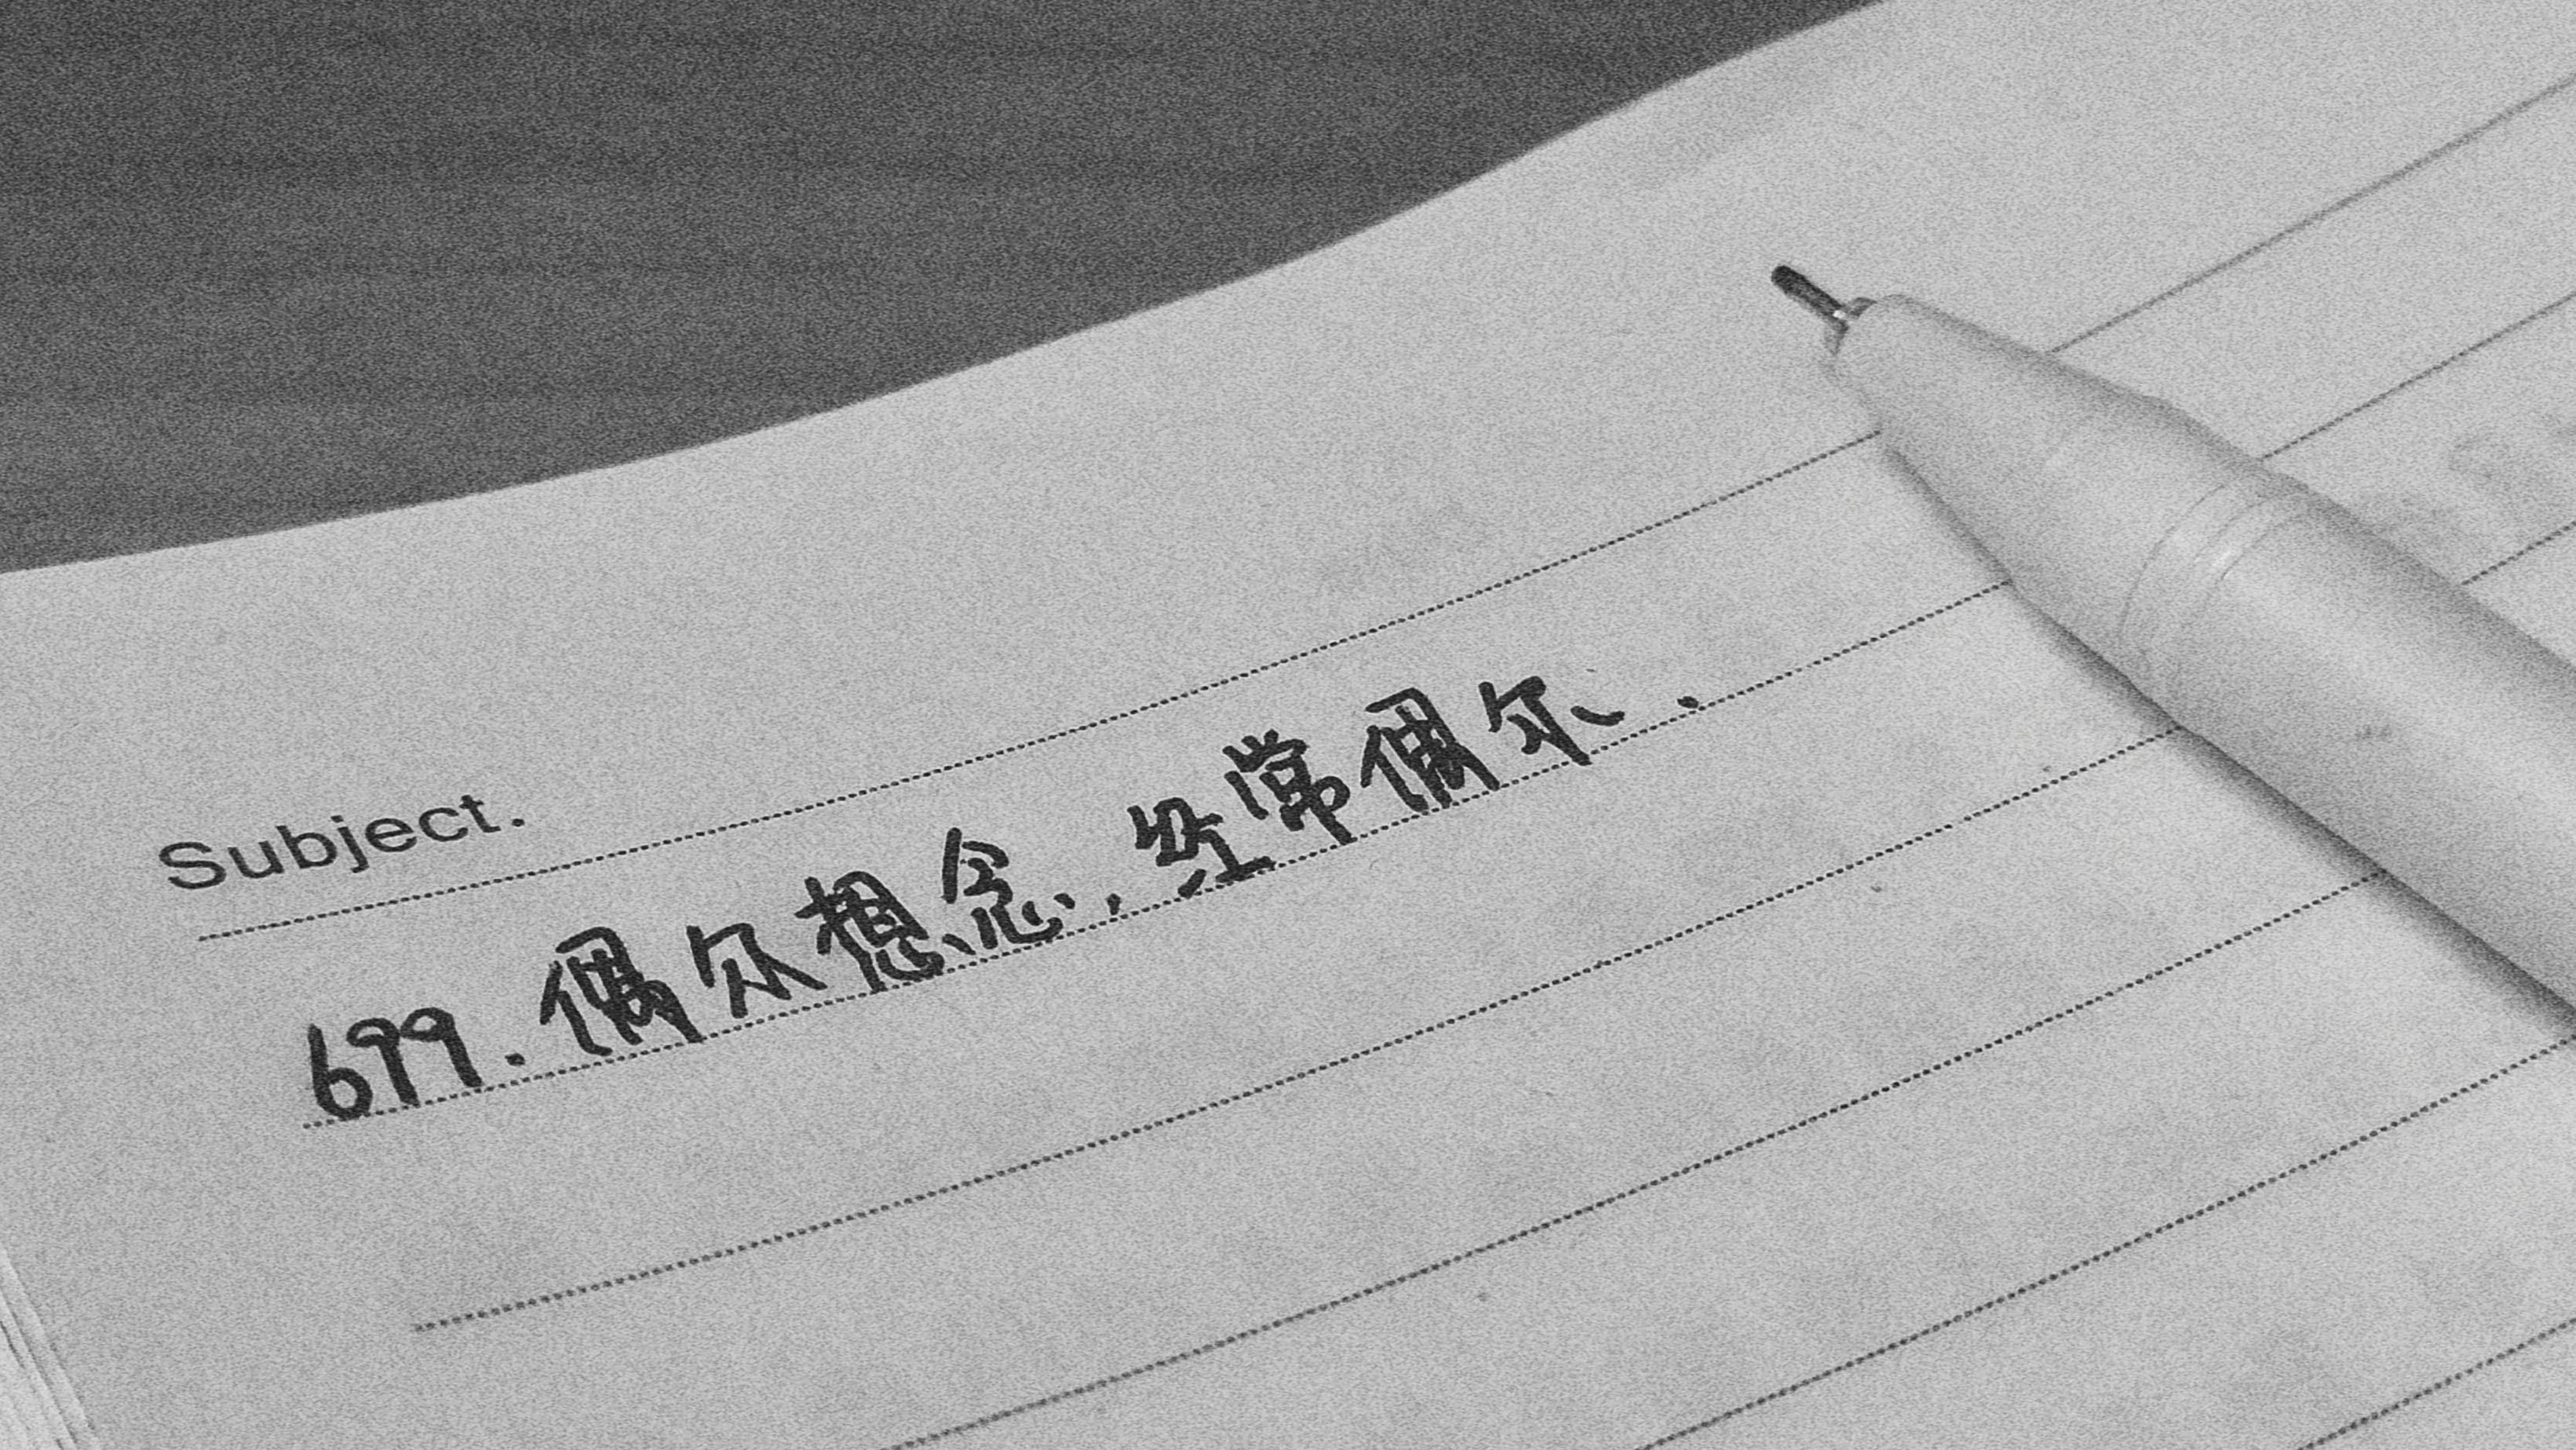 Subject.
699.偶尔想念,经常偶尔.